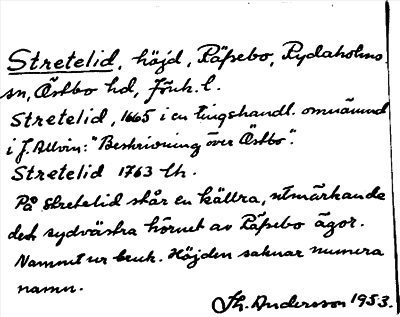 Stretelid, höjd, Räfsebo, Rydaholms
sn, Östbo hd, Jönk. l.
Stretelid, 1665 i en tingshandl. omnämnd
i J. Allvin: "Beskrivning över Östbo".
Stretelid 1763 th.
På Stretelid står en källra, utmärkande
det sydvästra hörnet av Räfsebo ägor.
Namnet ur bruk. Höjden saknar numera
namn.
Th. Andersson 1953.